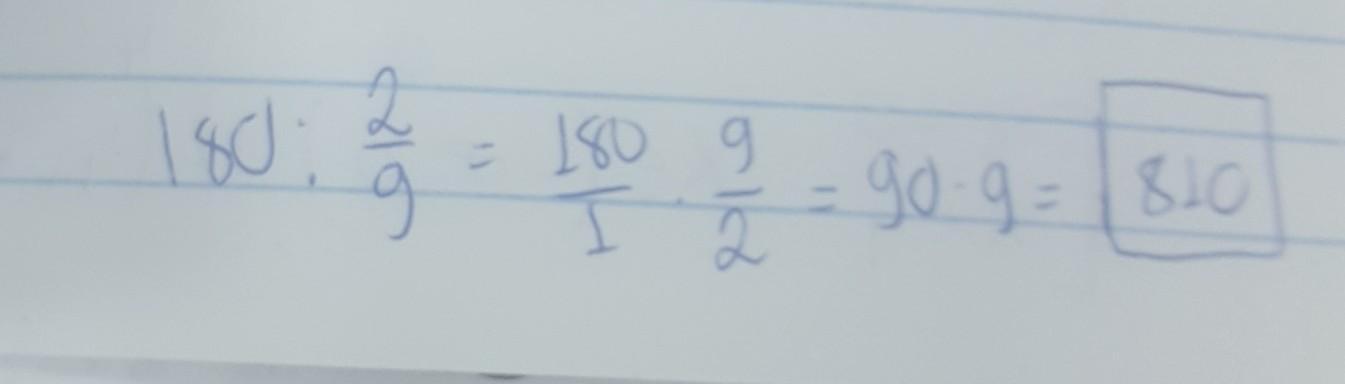 180 : 2/9 = 180/1 · 9/2 = 90 · 9 = 810